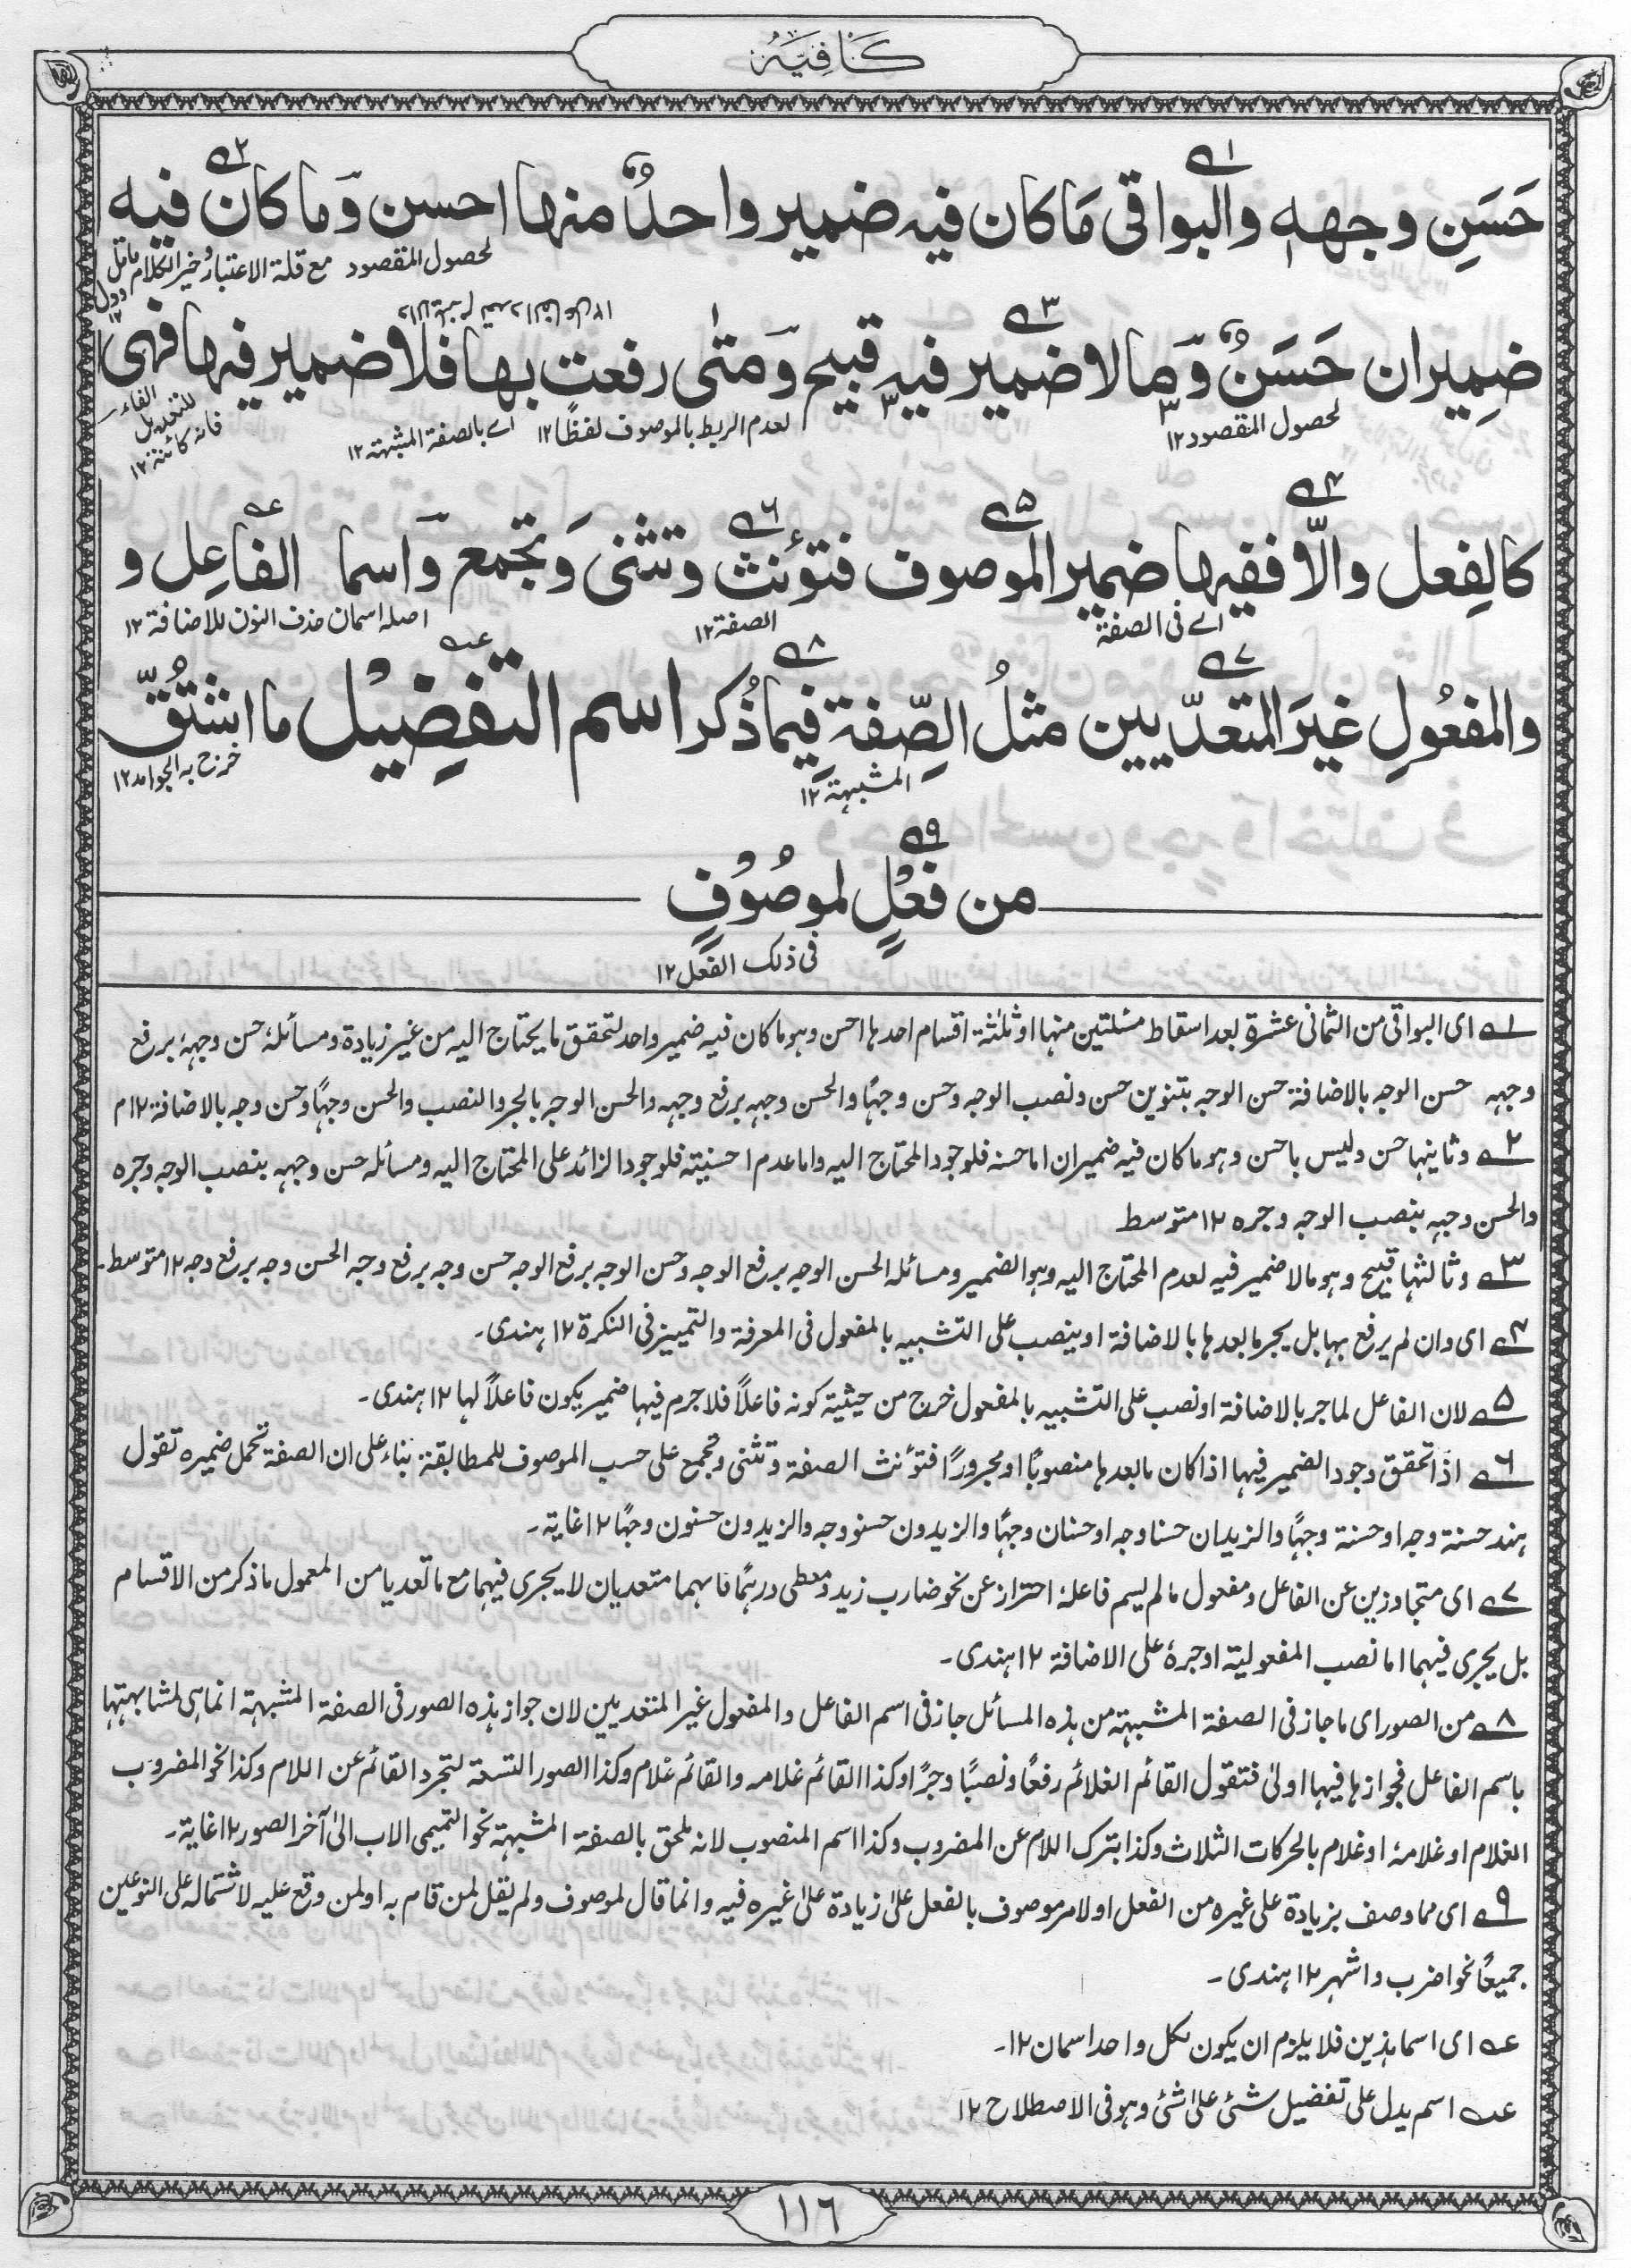 كَافِيَه
حَسَنِ وجهه والبواقى مَا كان فيه ضمير واحدٌ منها احسن وَما كان فيه
لحصول المقصود مع قلة الاعتبار وخير الكلام ما قل ودل ١٢
ضِميران حَسَنٌ وَّما لا ضمير فيه قبيح وَمتٰى رفعت بها فلا ضمير فيها فهى
لحصول المقصود ١٢
لعدم الربط بالموصوف لفظًا ١٢
اے بالصفة المشبهة ١٢
الفاء للتعليل
فانه كائنة ١٢
كالفِعل والّا ففيها ضمير الموصوف فتؤنث وتثنى وَتجمع وَاسما الفاعِل و
اے فى الصفة
الصفة ١٢
اصله اسمان حذف النون للاضافة ١٢
والمفعُولِ غيرَ المتعدّيين مثلُ الصِّفةِ فيما ذُكر اسم التفضِيْل ما اشتُقّ
المشبهة ١٢
خرج به الجوامد ١٢
من فعْلٍ لموصُوْفٍ
فى ذلك الفعل ١٢
١ے اى البواقى من الثمانى عشرة بعد اسقاط مسئلتين منها او ثلثة اقسام احدها احسن وهو ما كان فيه ضمير واحد لتحقق ما يحتاج اليه من غير زيادة ومسائله حسن وجهه برفع
وجهه حسن الوجه بالاضافة حسن الوجه بتنوين حسن ونصب الوجه وحسن وجهًا والحسن وجهه برفع وجهه والحسن الوجه بالجر والنصب والحسن وجهًا وحسن وجه بالاضافة ١٢ م
٢ے وثانيها حسن وليس باحسن وهو ما كان فيه ضميران اما حسنه فلوجود المحتاج اليه واما عدم احسنيته فلوجود الزائد على المحتاج اليه ومسائله حسن وجهه بنصب الوجه وجره
والحسن وجهه بنصب الوجه وجره ١٢ متوسط
٣ے وثالثها قبيح وهو ما لا ضمير فيه لعدم المحتاج اليه وهو الضمير ومسائله الحسن الوجه برفع الوجه وحسن الوجه برفع الوجه حسن وجه برفع وجه الحسن وجه برفع وجه ١٢ متوسط۔
٤ے اى وان لم يرفع بها بل يجر ما بعدها بالاضافة او ينصب على التشبيه بالمفعول فى المعرفة والتمييز فى النكرة ١٢ هندى۔
٥ے لان الفاعل لما جر بالاضافة او نصب على التشبيه بالمفعول خرج من حيثية كونه فاعلاً فلا جرم فيها ضمير يكون فاعلاً لها ١٢ هندى۔
٦ے اذا تحقق وجود الضمير فيها اذا كان ما بعدها منصوبًا او مجرورًا فتؤنث الصفة وتثنى وتجمع على حسب الموصوف للمطابقة بناء على ان الصفة تحمل ضميره تقول
هند حسنة وجه او حسنة وجهًا والزيدان حسنا وجه او حسنان وجهًا والزيدون حسنو وجه والزيدون حسنون وجهًا ١٢ غاية۔
٧ے اى متجاوزين عن الفاعل ومفعول ما لم يسم فاعلهٗ احتراز عن نحو ضارب زيد ومعطى درهمًا فانهما متعديان لا يجرى فيهما مع ما تعديا من المعمول ما ذكر من الاقسام
بل يجرى فيهما اما نصب المفعولية او جرهٗ على الاضافة ١٢ هندى۔
٨ے من الصور اى ما جاز فى الصفة المشبهة من هذه المسائل جاز فى اسم الفاعل والمفعول غير المتعديين لان جواز هذه الصور فى الصفة المشبهة انما هى لمشابهتها
باسم الفاعل فجوازها فيها اولىٰ فتقول القائم الغلام رفعًا ونصبًا وجرًا وكذا القائم غلامه والقائم غلام وكذا الصور التسعة لتجرد القائم عن اللام وكذا نحو المضروب
الغلام او غلامهٗ او غلام بالحركات الثلاث وكذا بترك اللام عن المضروب وكذا اسم المنصوب لانه ملحق بالصفة المشبهة نحو التميمى الاب الىٰ آخر الصور ١٢ غاية۔
٩ے اى مما وصف بزيادة على غيره من الفعل او لامر موصوف بالفعل علىٰ زيادة علىٰ غيره فيه وانما قال لموصوف ولم يقل لمن قام به او لمن وقع عليه لاشتماله على النوعين
جميعًا نحو اضرب واشهر ١٢ هندى۔
عه اى اسما هذين فلا يلزم ان يكون لكل واحد اسمان ١٢۔
عه اسم يدل على تفضيل شئ علىٰ شئ وهو فى الاصطلاح ١٢
١١٦